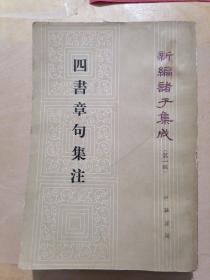 新編諸子集成
(第一輯)
四書章句集注
中華書局